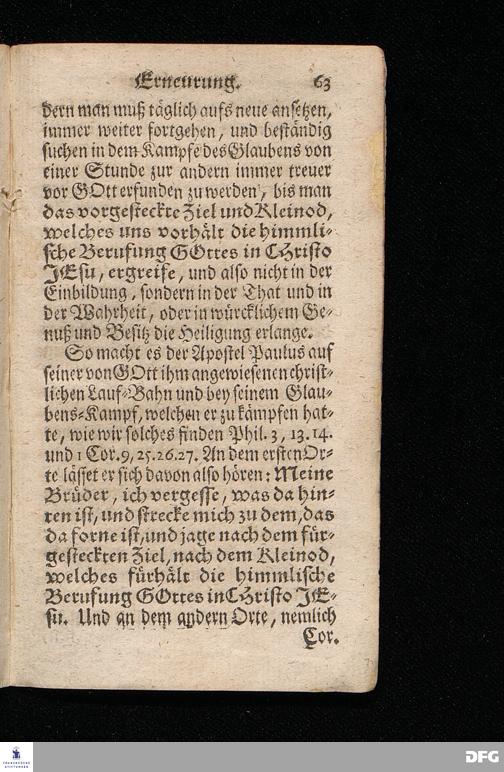 Erneurung. 63
dern man muß täglich aufs neue ansetzen,
immer weiter fortgehen, und beständig
suchen in dem Kampfe des Glaubens von
einer Stunde zur andern immer treuer
vor GOtt erfunden zu werden, bis man
das vorgesteckte Ziel und Kleinod,
welches uns vorhält die himmli-
sche Berufung GOttes in CHristo
JEsu, ergreife, und also nicht in der
Einbildung, sondern in der That und in
der Wahrheit, oder in würcklichem Ge-
nuß und Besitz die Heiligung erlange.
So macht es der Apostel Paulus auf
seiner von GOtt ihm angewiesenen christ-
lichen Lauf-Bahn und bey seinem Glau-
bens-Kampf, welchen er zu kämpfen hat-
te, wie wir solches finden Phil. 3, 13. 14.
und 1 Cor. 9, 25. 26. 27. An dem ersten Or-
te lässet er sich davon also hören: Meine
Brüder, ich vergesse, was da hin-
ten ist, und strecke mich zu dem, das
da forne ist, und jage nach dem für-
gesteckten Ziel, nach dem Kleinod,
welches fürhält die himmlische
Berufung GOttes in CHristo JE-
su. Und an dem andern Orte, nemlich
Cor.
FRANCKESCHE
STIFTUNGEN
DFG